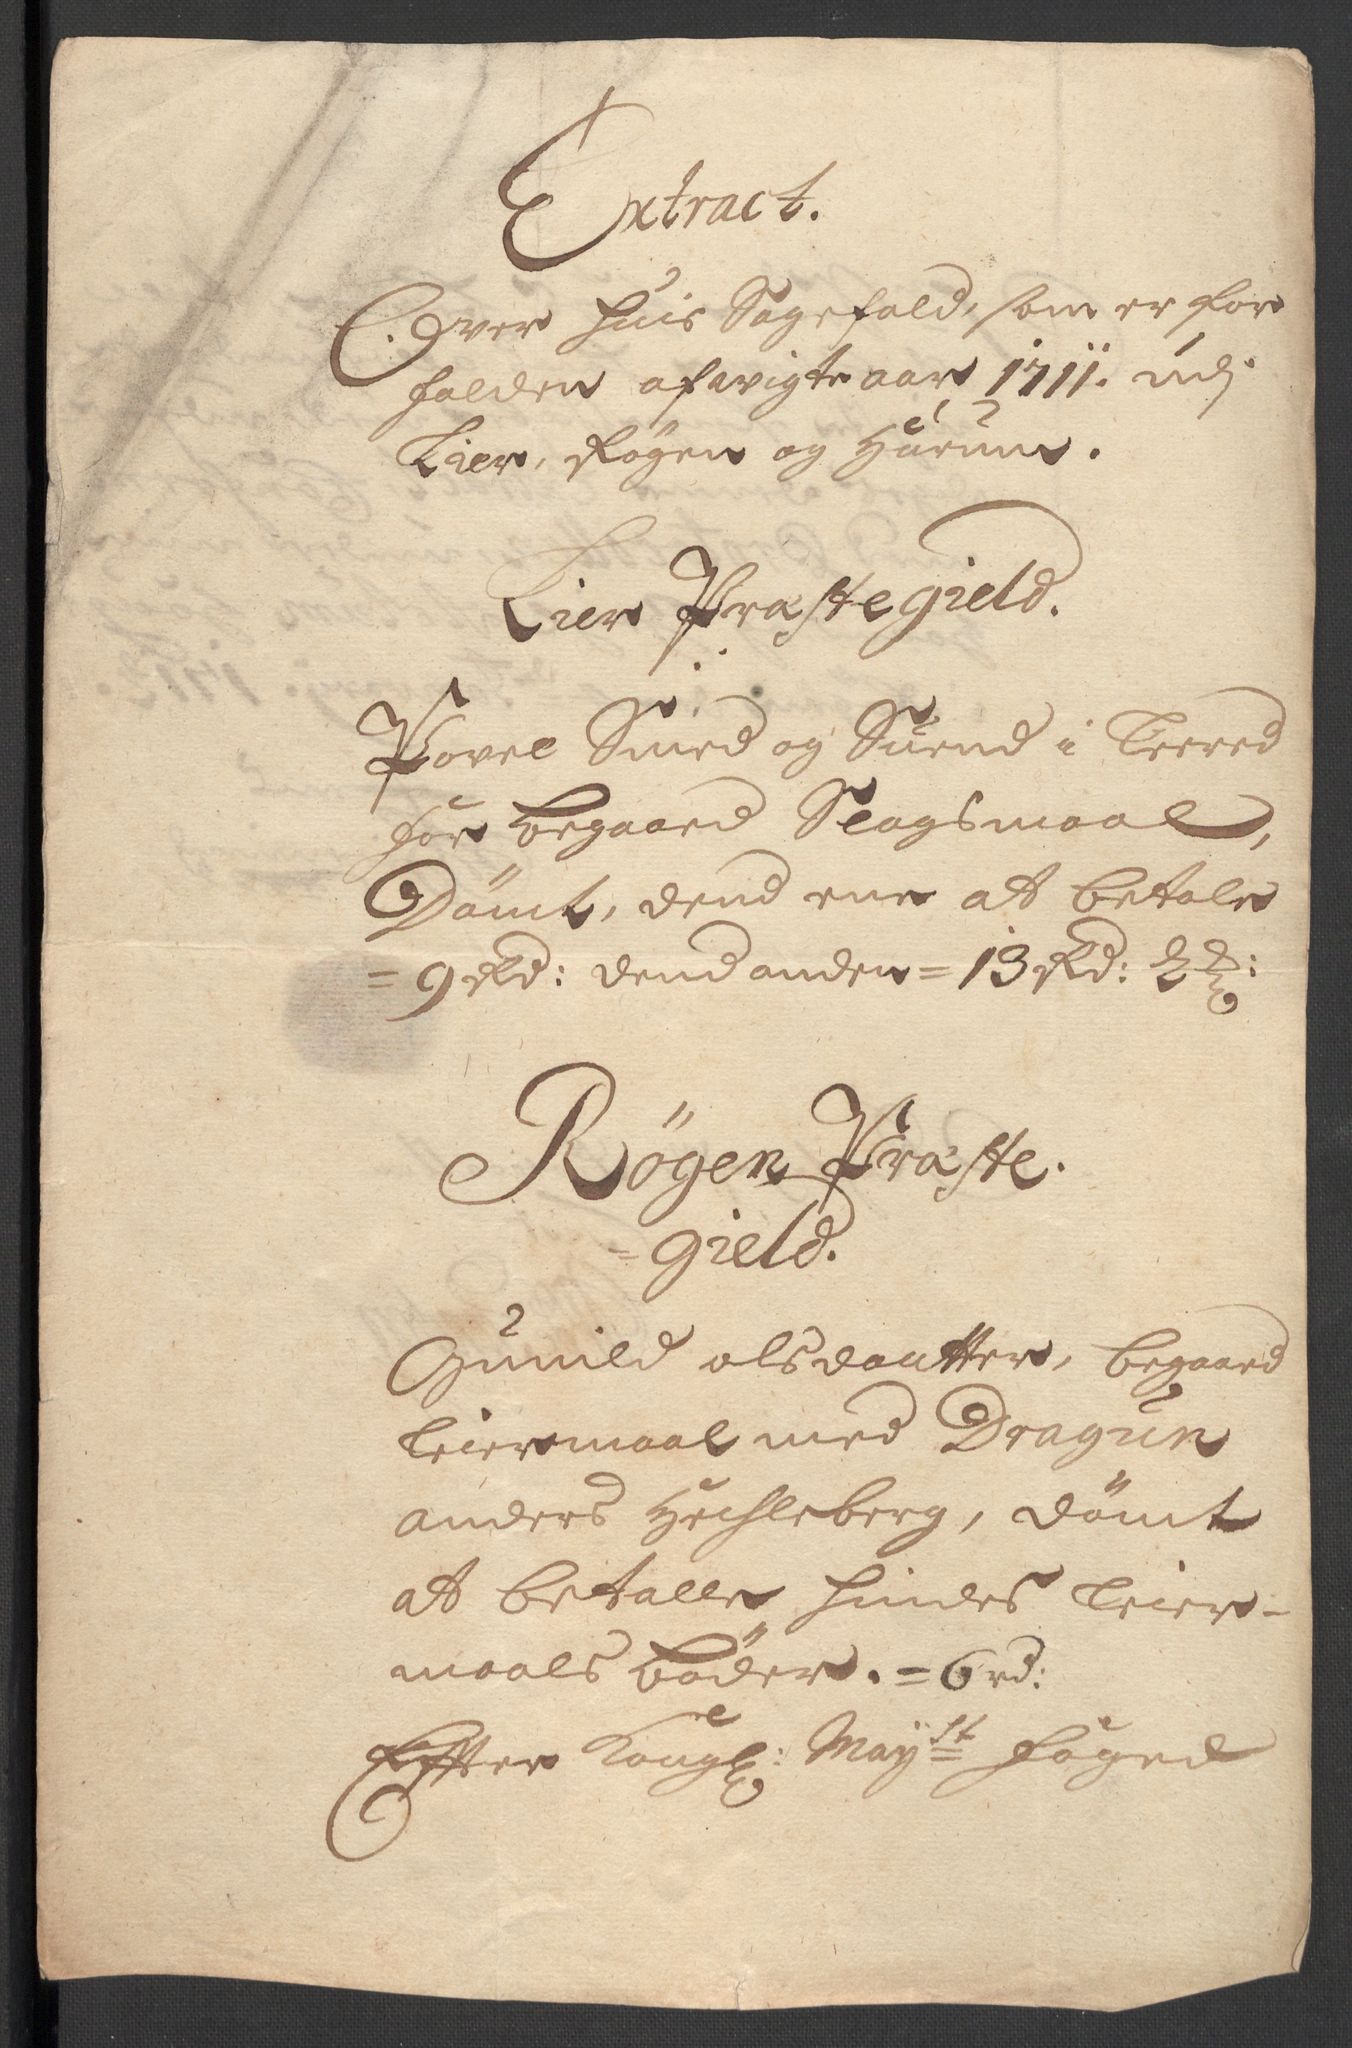 Extract.
Over huis Sagefald, som er for
falden afvigte aar 1711. udj
Lier, Røgen og Hurum.
Lier Præstegield.
Povel Smed og Suend i Leered
for begaaed Slagsmaal,
Dömt, dend ene at betale
= 9 Rd: dend anden = 13 Rd:
Rögen Præste.
= gield.
Gunild olsdaatter, begaaed
leiermaal med Dragun
anders Hechleberg, dömt
at betalle hindes leier-
maals böder. = 6 rd:
Effter Kongl: Mayst foged